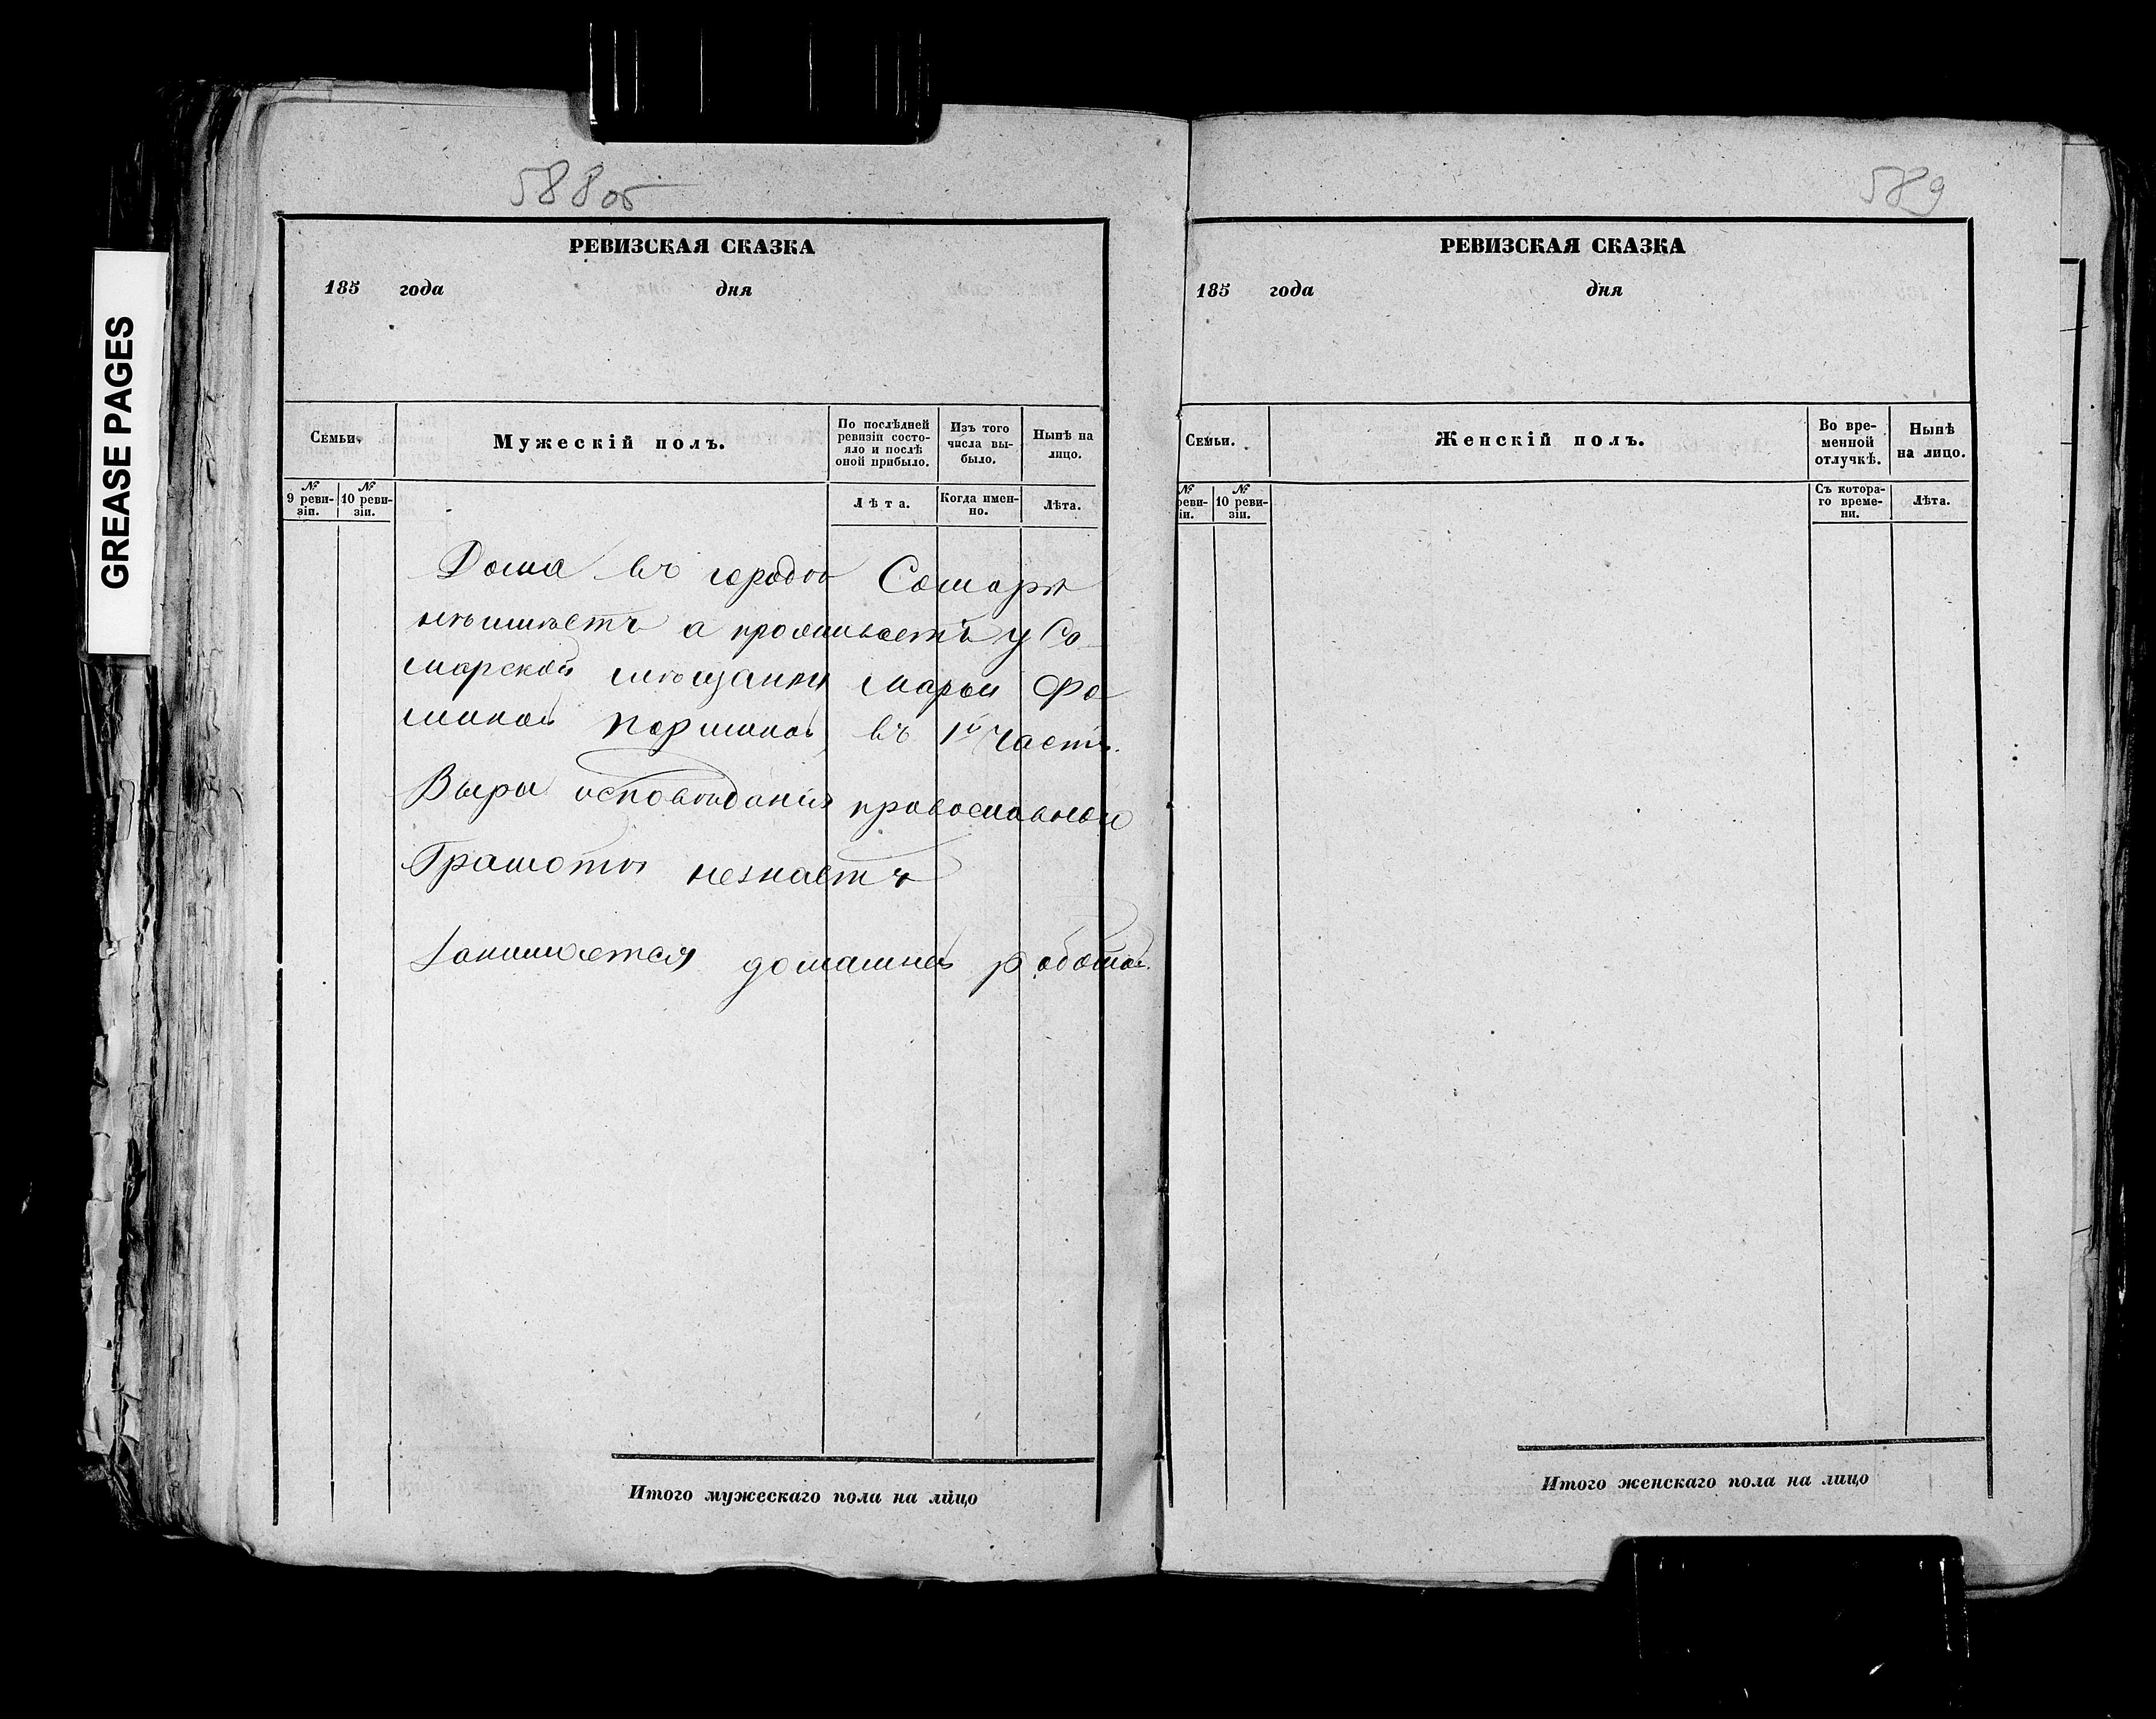 GREASE PAGES
588об
РЕВИЗСКАЯ СКАЗКА
185 года дня
Семьи.
Мужескій полъ.
По послѣдней ревизіи состояло и послѣ оной прибыло.
Изъ того числа выбыло.
Нынѣ на лицо.
№ 9 ревизіи.
№ 10 ревизіи.
Лѣта.
Когда именно.
Лѣта.
Дома въ городѣ Самарѣ
неимѣетъ а проживаетъ у Са-
марской мѣщанки Марьи Фо
миной в 1й части.
Вѣры исповѣданія православной
Грамоты незнаетъ
Занимается домашней работой.
Итого мужескаго пола на лицо
589
РЕВИЗСКАЯ СКАЗКА
185 года дня
Семьи.
Женскій полъ.
Во временной отлучкѣ.
Нынѣ на лицо.
№ реви- іи.
№ 10 ревизіи.
Съ котораго времени.
Лѣта.
Итого женскаго пола на лицо